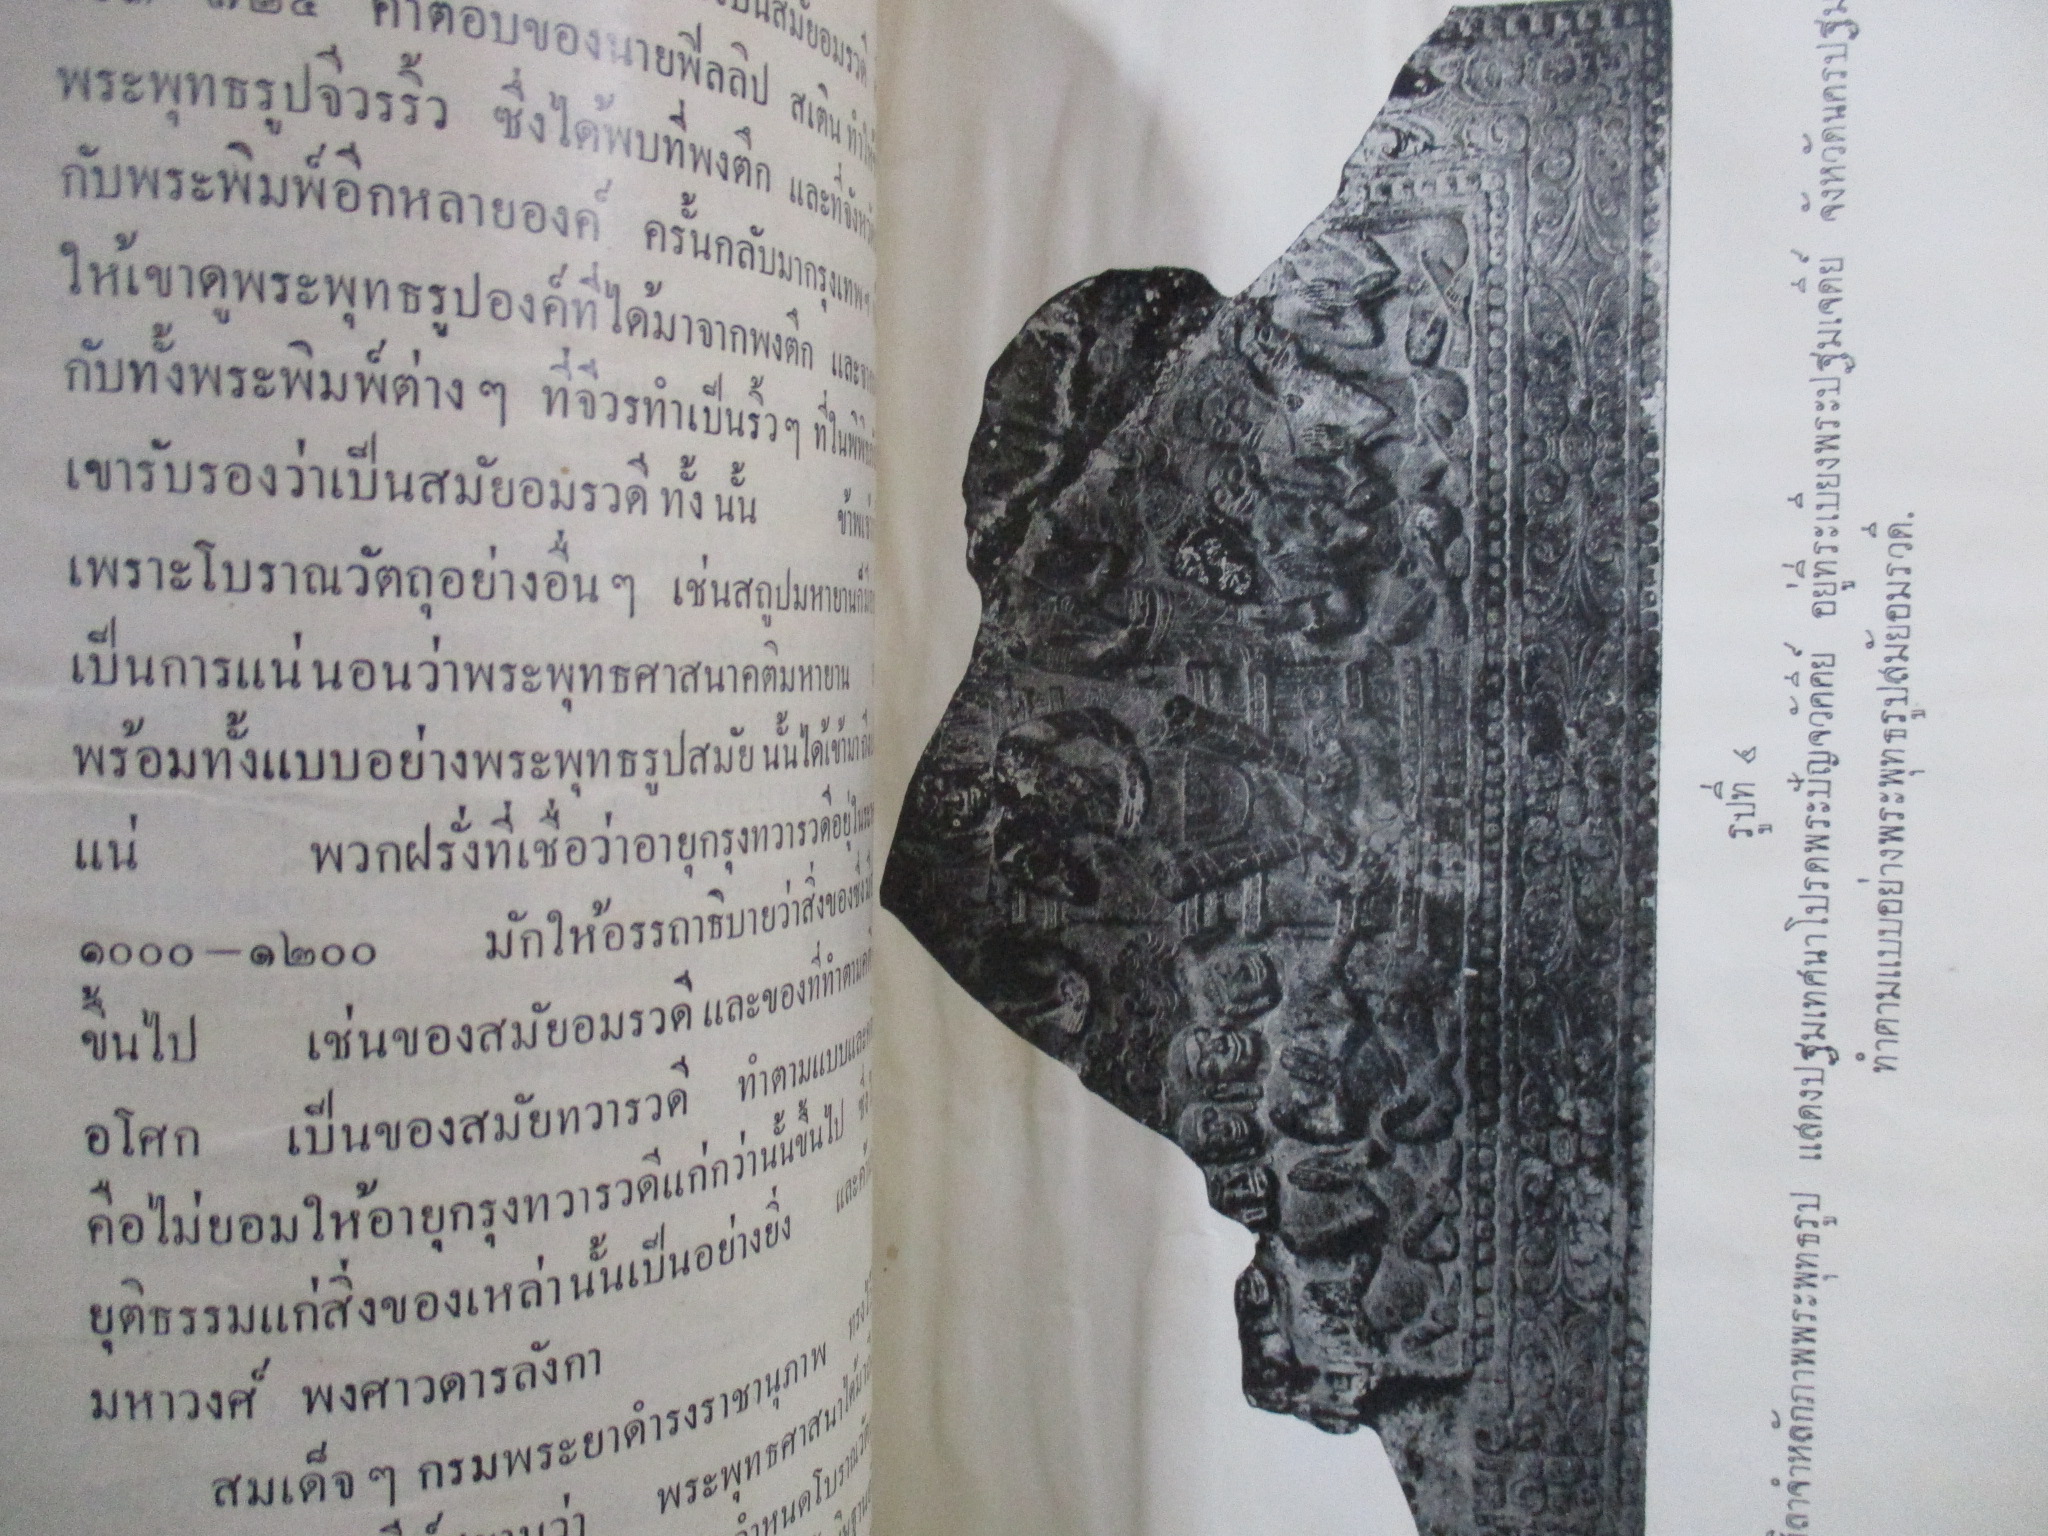 คำตอบของนายฟิลลิป สเติน
พระพุทธรูปจีวรริ้ว ซึ่งได้พบที่พงตึก และที่จังหวัด
กับพระพิมพ์อีกหลายองค์ ครั้นกลับมากรุงเทพฯ
ให้เขาดูพระพุทธรูปองค์ที่ได้มาจากพงตึก และจาก
กับทั้งพระพิมพ์ต่างๆ ที่จีวรทำเป็นริ้วๆ
เขารับรองว่าเป็นสมัยอมรวดีทั้งนั้น
เพราะโบราณวัตถุอย่างอื่นๆ เช่นสถูปมหายาน
เป็นการแน่นอนว่าพระพุทธศาสนาคติมหายาน
พร้อมทั้งแบบอย่างพระพุทธรูปสมัยนั้นได้เข้ามา
แน่ พวกฝรั่งที่เชื่อว่าอายุกรุงทวารวดีอยู่ใน
๑๐๐๐—๑๒๐๐ มักให้อรรถาธิบายว่าสิ่งของซึ่ง
ขึ้นไป เช่นของสมัยอมรวดี และของที่ทำตาม
อโศก เป็นของสมัยทวารวดี ทำตามแบบและ
คือไม่ยอมให้อายุกรุงทวารวดีแก่กว่านั้นขึ้นไป
ยุติธรรมแก่สิ่งของเหล่านั้นเป็นอย่างยิ่ง
มหาวงศ์ พงศาวดารลังกา
สมเด็จๆ กรมพระยาดำรงราชานุภาพ
พระพุทธศาสนาได้มา
รูปที่ ๔
ศิลาจำหลักภาพพระพุทธรูป แสดงปฐมเทศนาโปรดพระปัญจวัคคีย์ อยู่ที่ระเบียงพระปฐมเจดีย์ จังหวัดนครปฐม
ทำตามแบบอย่างพระพุทธรูปสมัยอมรวดี.